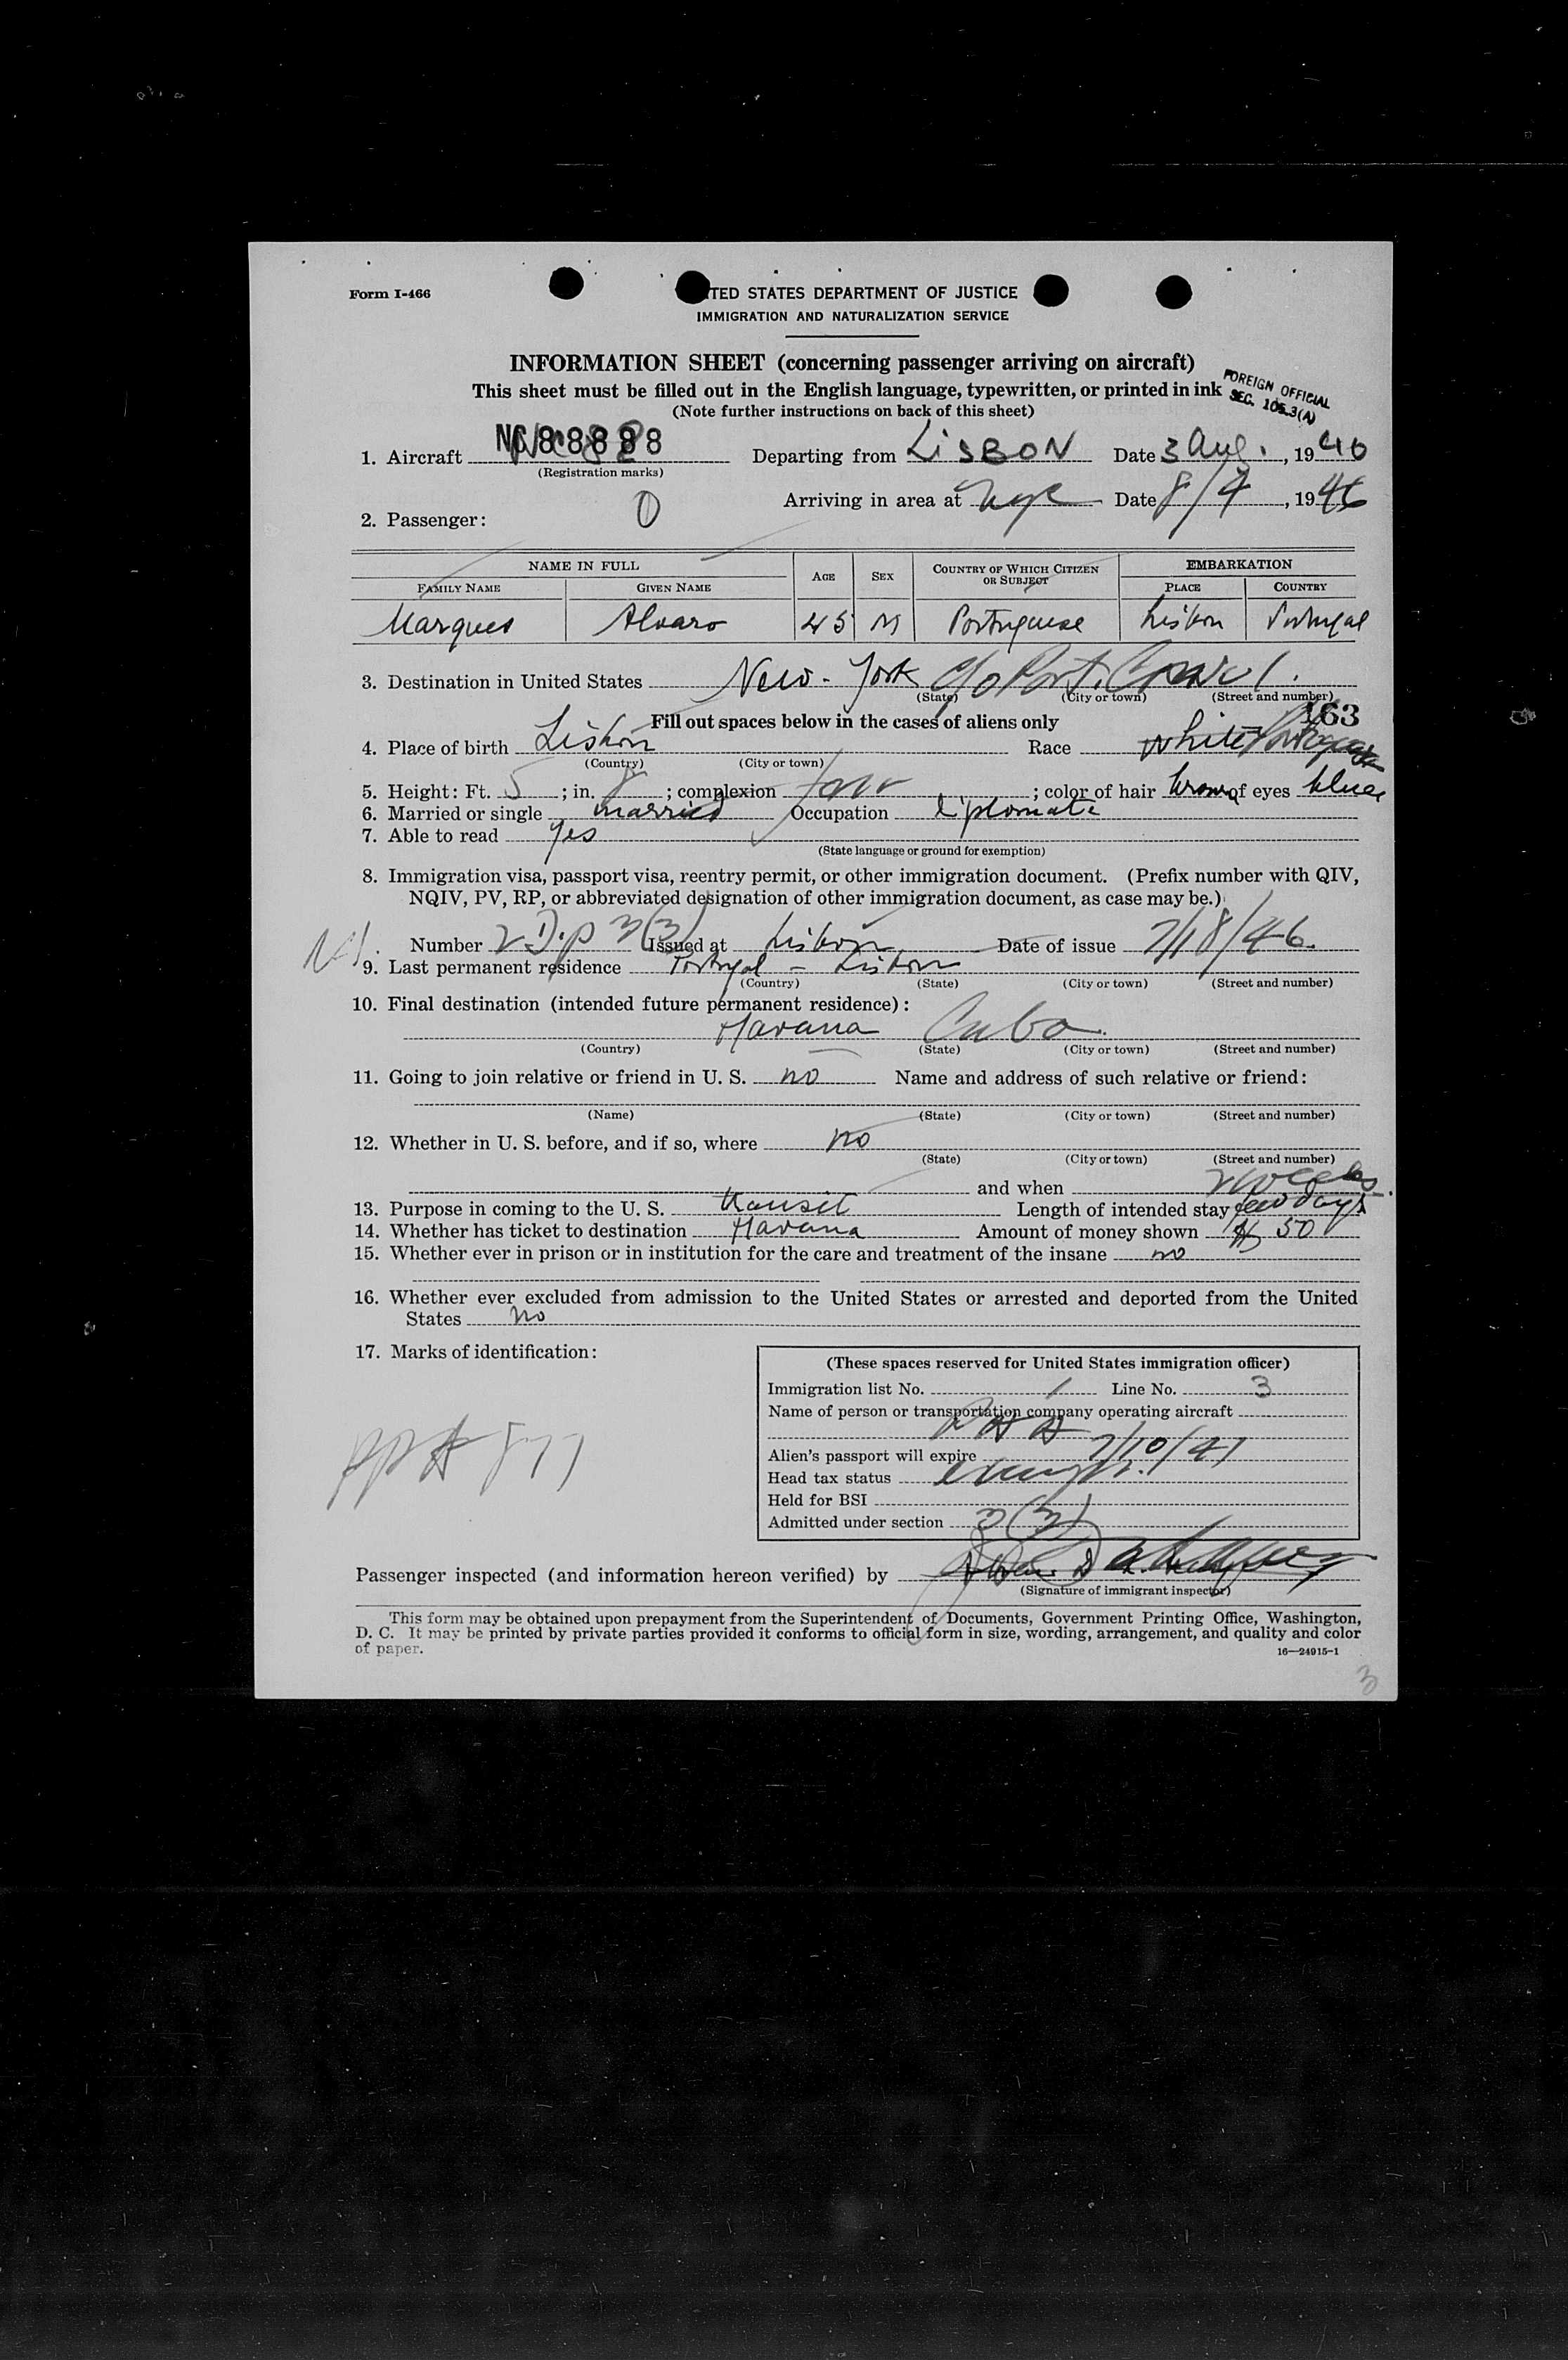 Form I-466
TED STATES DEPARTMENT OF JUSTICE
IMMIGRATION AND NATURALIZATION SERVICE
INFORMATION SHEET (concerning passenger arriving on aircraft)
This sheet must be filled out in the English language, typewritten, or printed in ink
FOREIGN OFFICIAL
SEC. 105.3(A)
(Note further instructions on back of this sheet)
1. Aircraft NC 88888 Departing from LISBON Date 3 Aug. , 1946
(Registration marks)
Arriving in area at nyc Date 8/4, 1946
2. Passenger: 0
NAME IN FULL AGE SEX COUNTRY OF WHICH CITIZEN OR SUBJECT EMBARKATION
FAMILY NAME GIVEN NAME PLACE COUNTRY
Marques Alvaro 45 M Portuguese Lisbon Portugal
3. Destination in United States New-York c/o Port. Consul.
(State) (City or town) (Street and number)
Fill out spaces below in the cases of aliens only 163
4. Place of birth Lisbon Race White
(Country) (City or town)
5. Height: Ft. 5; in. 8; complexion fair; color of hair brown of eyes blue
6. Married or single married Occupation diplomate
7. Able to read yes
(State language or ground for exemption)
8. Immigration visa, passport visa, reentry permit, or other immigration document. (Prefix number with QIV,
NQIV, PV, RP, or abbreviated designation of other immigration document, as case may be.)
Number Dip 3(3) Issued at Lisbon Date of issue 7/18/46.
9. Last permanent residence Portugal - Lisbon
(Country) (State) (City or town) (Street and number)
10. Final destination (intended future permanent residence):
Havana Cuba
(Country) (State) (City or town) (Street and number)
11. Going to join relative or friend in U. S. no Name and address of such relative or friend:
(Name) (State) (City or town) (Street and number)
12. Whether in U. S. before, and if so, where no
(State) (City or town) (Street and number)
and when 2 weeks.
13. Purpose in coming to the U. S. transit Length of intended stay few days
14. Whether has ticket to destination Havana Amount of money shown $ 50
15. Whether ever in prison or in institution for the care and treatment of the insane no
16. Whether ever excluded from admission to the United States or arrested and deported from the United
States no
17. Marks of identification:
(These spaces reserved for United States immigration officer)
Immigration list No. 1 Line No. 3
Name of person or transportation company operating aircraft
PAA
Alien's passport will expire 7/10/47
Head tax status exempt.
Held for BSI
Admitted under section 3(3)
pp# 877
Passenger inspected (and information hereon verified) by
(Signature of immigrant inspector)
This form may be obtained upon prepayment from the Superintendent of Documents, Government Printing Office, Washington,
D. C. It may be printed by private parties provided it conforms to official form in size, wording, arrangement, and quality and color
of paper. 16—24915-1
3